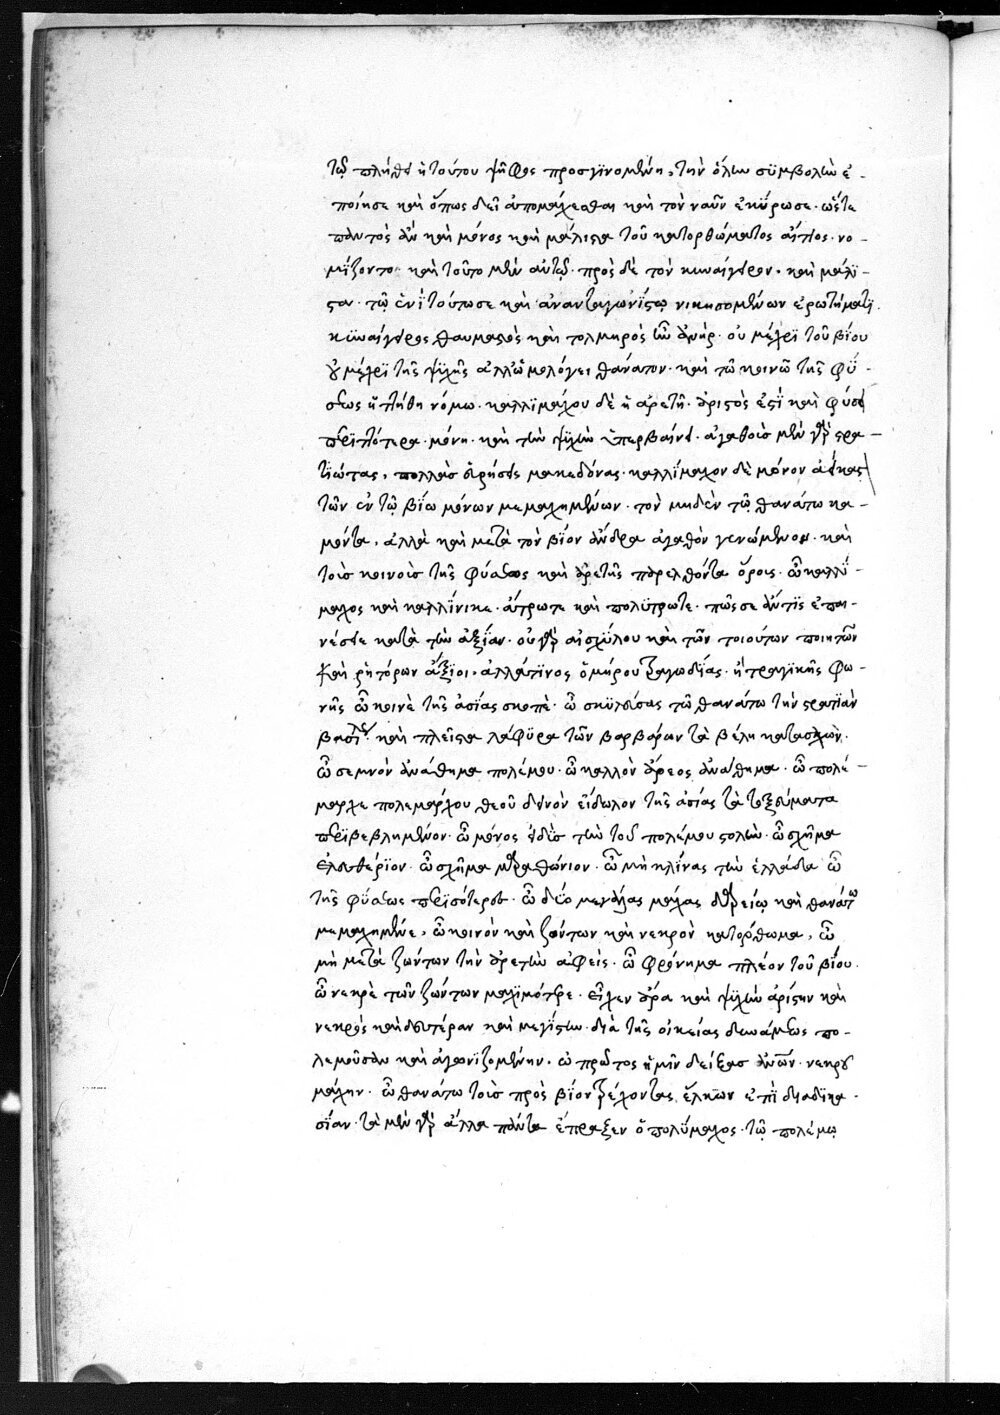 τῷ πλήθει ἡ τούτου ψῆφος προσγϊνομένη, τὴν ὅλην σϋμβολὴν ἐ-
ποίησε καὶ ὅπως δεῖ ἀπομάχεσθαι καὶ τὸν ναῦν ἐκύρωσε. ὥστε
παντὸς ἂν καὶ μόνος καὶ μάλιστα τοῦ κατορθώματος αἴτιος. νο-
μΐζοντο. καὶ τοῦτο μὲν αὐτῷ. πρὸς δὲ τὸν κυναίγειρον. καὶ μάλϊ-
σταν. τῷ ἑνὶ τούτωσε καὶ ἀνανταγωνίστῳ νικησομένων ἐρωτήματϊ.
κϋναίγειρος θαυμαστὸς καὶ τολμηρὸς ἦν ἀνήρ. οὐ μέχρϊ τοῦ βίου
οὐ μέχρϊ τῆς ψϋχῆς ἀλλ' ὡμολόγει θάνατον. καὶ τῷ κοινῷ τῆς φΰ-
σεως ἡττήθη νόμω. καλλϊμάχου δὲ ἡ ἀρετὴ. ἄριστός ἐστϊ καὶ φύσει
περϊττότερα. μόνη. καὶ τὴν ψϋχὴν ὑπερβαίνει. ἀγαθοὺς μὲν γὰρ στρα-
τϊώτας, πολλοὺς εὑρήσεις μακεδόνας. καλλΐμαχον δὲ μόνον
τῶν ἐν τῷ βΐω μόνων μεμαχημένων. τὸν μηδὲν τῷ θανάτω κα-
μόντα, ἀλλὰ καὶ μετὰ τὸν βΐον ἄνδρα ἀγαθὸν γενόμενον. καὶ
τοὺς κοινοὺς τῆς φύσεως καὶ ἀρετῆς παρελθόντα ὅρους. ὦ καλλΐ-
μαχος καὶ καλλΐνικε. ἄτρωτε καὶ πολϋτρωτε. πῶς σε ἄν τϊς ἐπαι-
νέσειε κατὰ τὴν ἀξΐαν. οὐ γὰρ αἰσχύλου καὶ τῶν τοιούτων ποιητῶν
καὶ ῥητόρων ἄξϊοι. ἀλλά τϊνος ὁμήρου ῥαψωδΐας. ἢ τραγϊκῆς φω-
νῆς ὦ κοινὲ τῆς ἀσΐας σκοπὲ. ὦ σκϋλεύσας τῷ θανάτω τὴν στρατϊὰν
βασιλέως. καὶ πλεῖστα λάφϋρα τῶν βαρβάρων τὰ βέλη κατασχών.
ὦ σεμνὸν ἀνάθημα πολέμου. ὦ καλλὸν ἄρεος ἀνάθημα. ὦ πολέ-
μαρχε πολεμάρχου θεοῦ δεινὸν εἴδωλον τῆς ἀσΐας τὰ τοξεύματα
περϊβεβλημένον. ὦ μόνος εἰδὼς τὴν τοῦ πολέμου στολὴν. ὦ σχῆμα
ἐλευθέρϊον. ὦ σχῆμα μαραθώνιον. ὦ μὴ κλΐνας τὴν ἑλλάδα ὦ
τῆς φύσεως περϊσότερος. ὦ δύο μεγάλας μάχας δαρείῳ καὶ θανάτω
μεμαχημένε, ὦ κοινὸν καὶ ζώντων καὶ νεκρὸν κατόρθωμα, ὦ
μὴ μετὰ ζώντων τὴν ἀρετὴν ἀφεὶς. ὦ φρόνημα πλέον τοῦ βΐου.
ὦ νεκρὲ τῶν ζώντων μαχϊμότερε. εἶχεν ἄρα καὶ ψϋχὴν ἀρΐστην καὶ
νεκρὸς καὶ δευτέραν καὶ μεγίστην. διὰ τῆς οἰκείας δυνάμεως πο-
λεμοῦσαν καὶ ἀγωνϊζομένην. ὦ πρῶτος ἡμῖν δείξας νεκροῦ
μάχην. ὦ θανάτω τοὺς πρὸς βΐον τρέχοντας, ἕλκων ἐπὶ διαδϊκα-
σΐαν. τὰ μὲν γὰρ ἄλλα πάντα ἔπραξεν ὁ πολΰμαχος. τῷ πολέμῳ